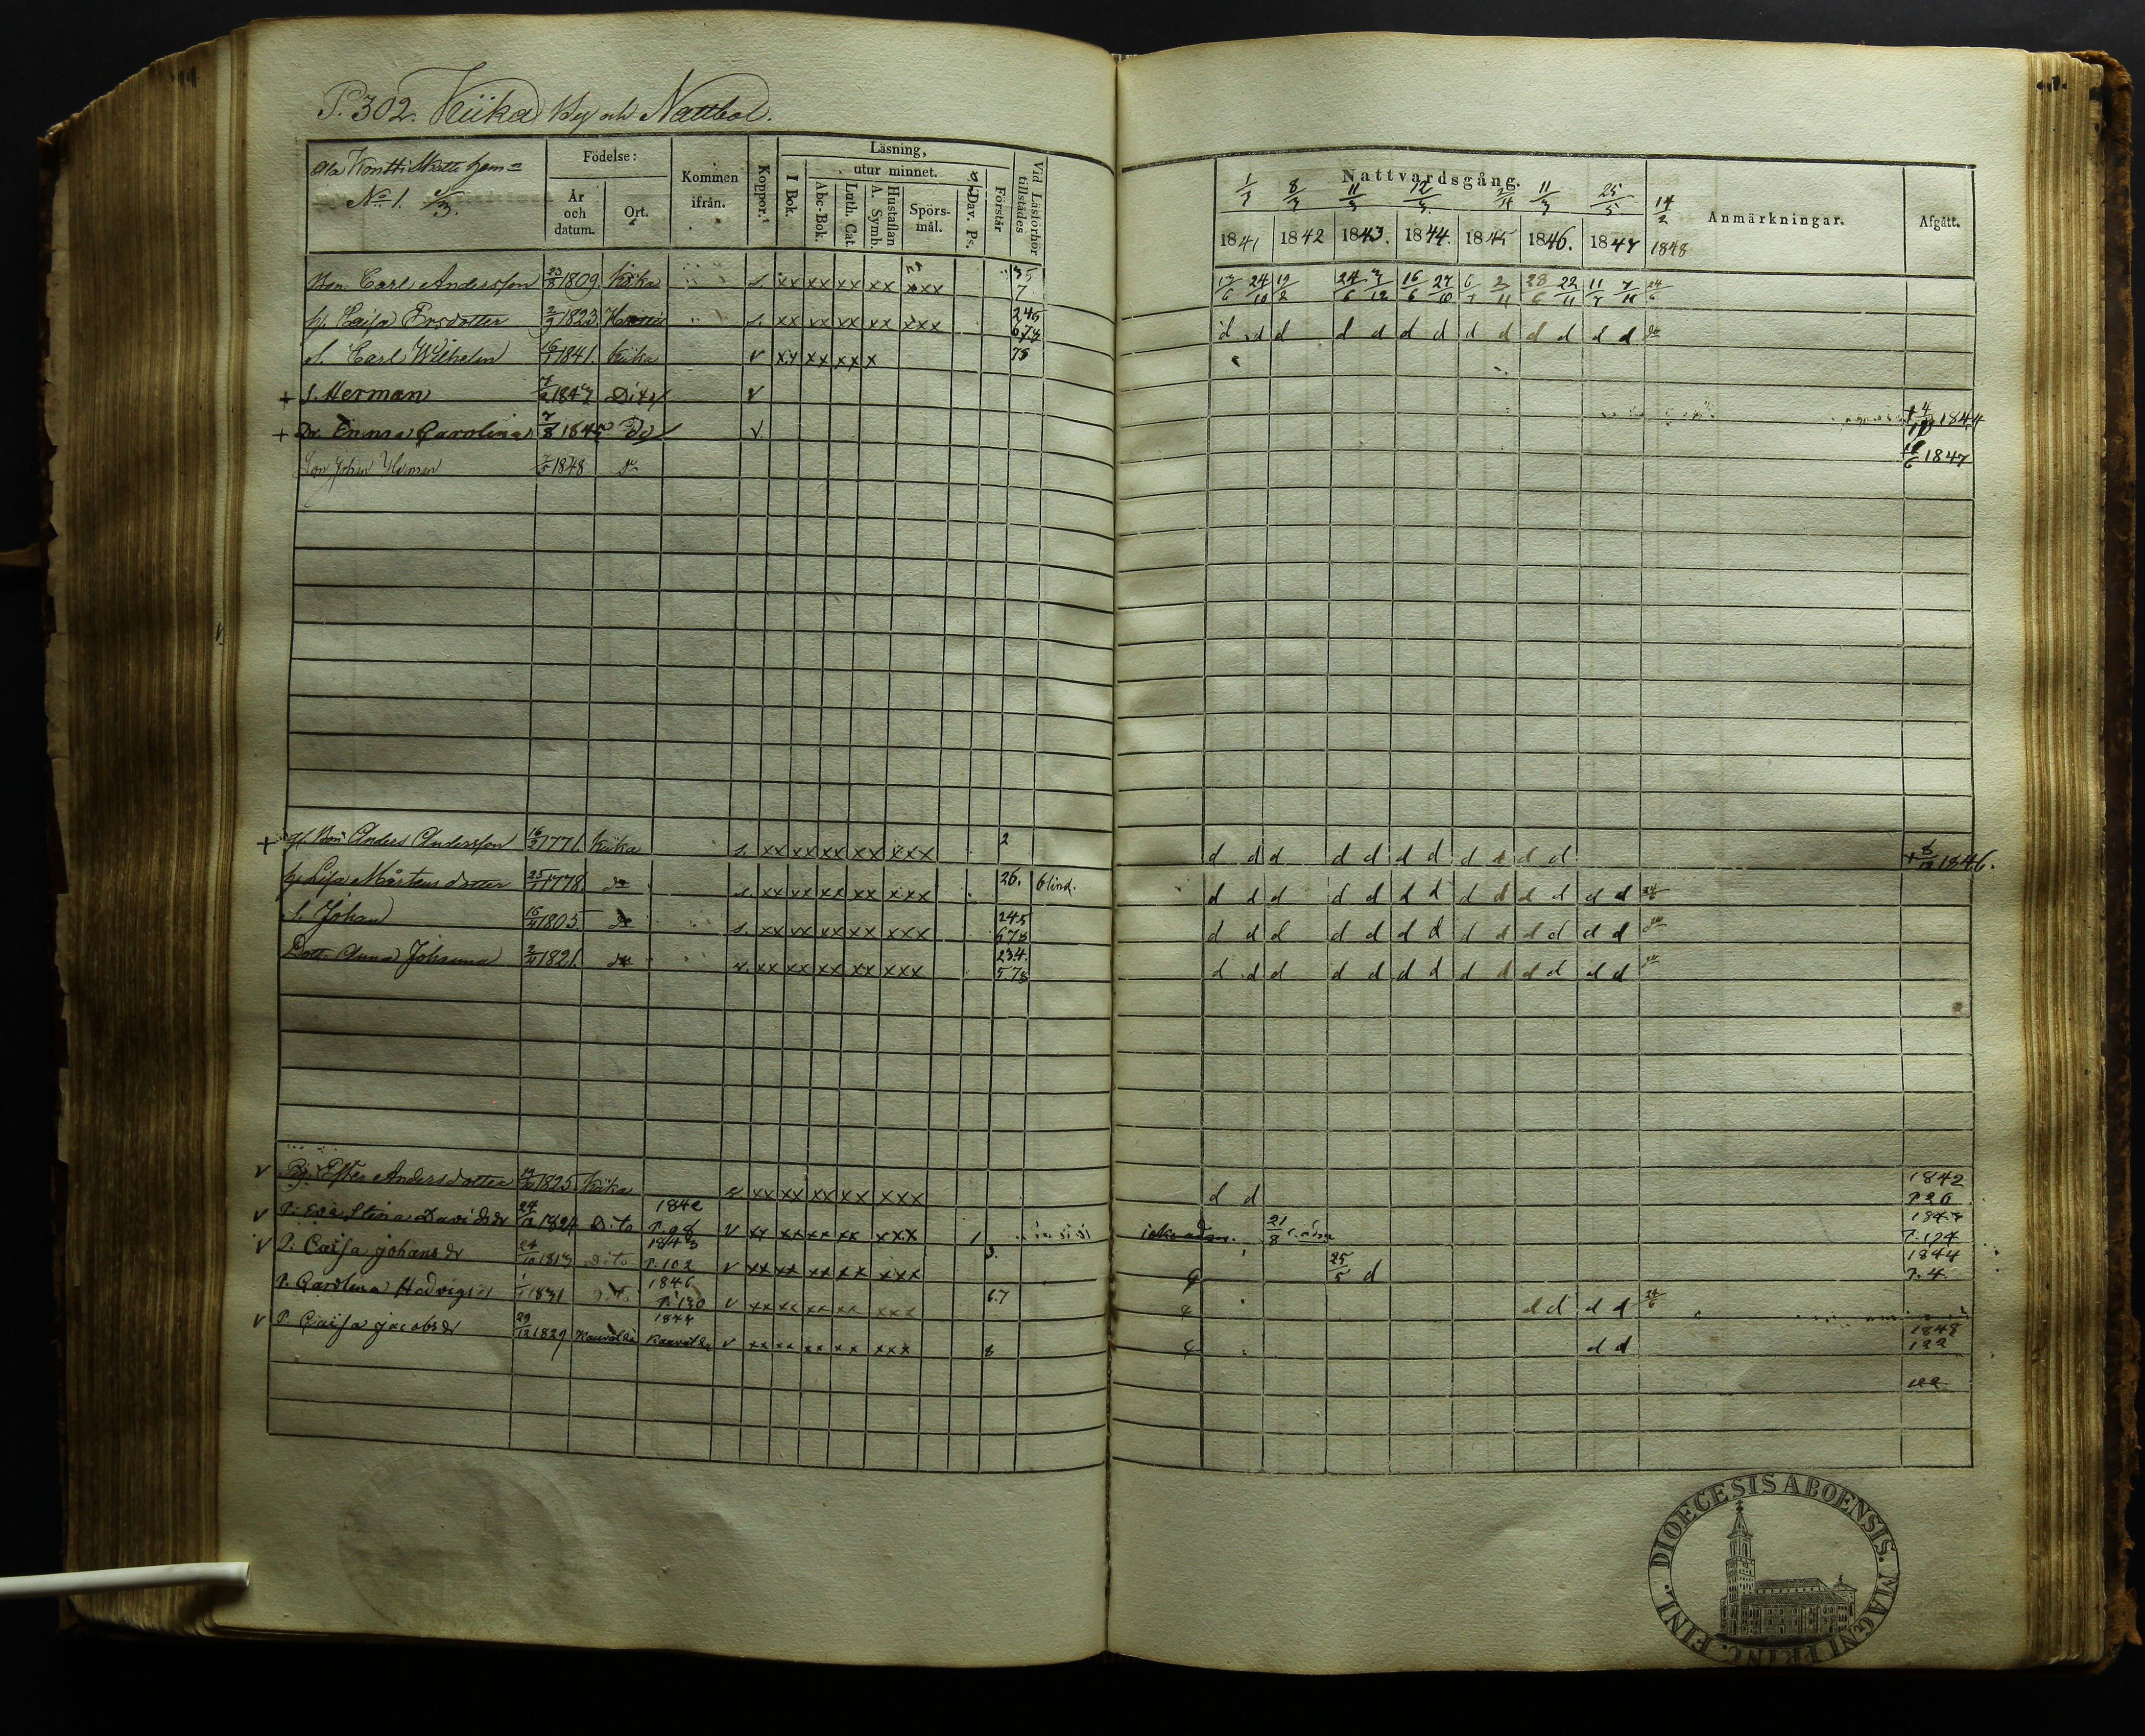 P. 302. Kiika By och Nattbol.
Ala Kontti Skatte hem=
No 1. 2/3.
Födelse:
År och datum.
Ort.
Kommen ifrån.
Koppor.
Läsning,
I Bok.
utur minnet.
Abc-Bok.
Luth. Cat.
Hustaflan A. Symb.
Spörs-mål.
Dav. Ps.
Förstår
Vid Läsförhör tillstädes
Nattvardsgång.
1841 1842 1843. 1844. 1845 1846. 1847 1848
Anmärkningar.
Afgått.
Bon. Carl Andersson 23/8 1809. Kiika s. xx xx xx xx xxx 35 7
h. Caisa Ersdotter 2/9 1823. s. xx xx xx xx xxx 245 678 d d d d d d d d d d d d d do
s. Carl Wilhelm 16/1 1841. Kiika v xx xx xx x 78
+ s. Herman 1843 Dito v + 4/10 1844
+ Dr Emma Carolina 7/8 1845 Do v 1847
Son Johan Herman 1848 do
+ gf. Bon Anders Andersson 16/3 1771. Kiika s. xx xx xx xx xxx 2 d d d d d d d d d d d + 8/12 1846.
h. Lisa Mårtensdotter 25/11 1778. do s. xx xx xx xx xxx 26. blind. d d d d d d d d d d d d d 24/6
s. Johan 15/4 1805. do s. xx xx xx xx xxx 245 678 d d d d d d d d d d d d d do
Dott. Anna Johanna 2/4 1821. do v. xx xx xx xx xxx 234. 578 d d d d d d d d d d d d d do
v Pig. Ester Andersdotter 1825. Kiika xx xx xx xx xxx d d 1842 P. 26
v P. Eva Stina Davidsdr 24/12 1824 Dito 1842 P. 98 v xx xx xx xx xxx 1 icke adm. 21/8 P. 174
v P. Caisa Johansdr 24/10 1813 Dito 1843 P. 102 v xx xx xx xx xxx 3. 25/5 d 1844 P. 4.
P. Carolina Hedvig 1/1 1831 Dito 1846 P. 130 v xx xx xx xx xxx 6.7 d d d d 24/6
v P. Caisa Jacobsdr 29/12 1829 v xx xx xx xx xxx 8 d d 1848 122
DIOECESIS ABOENSIS. MAGNI PRINC. FINL.